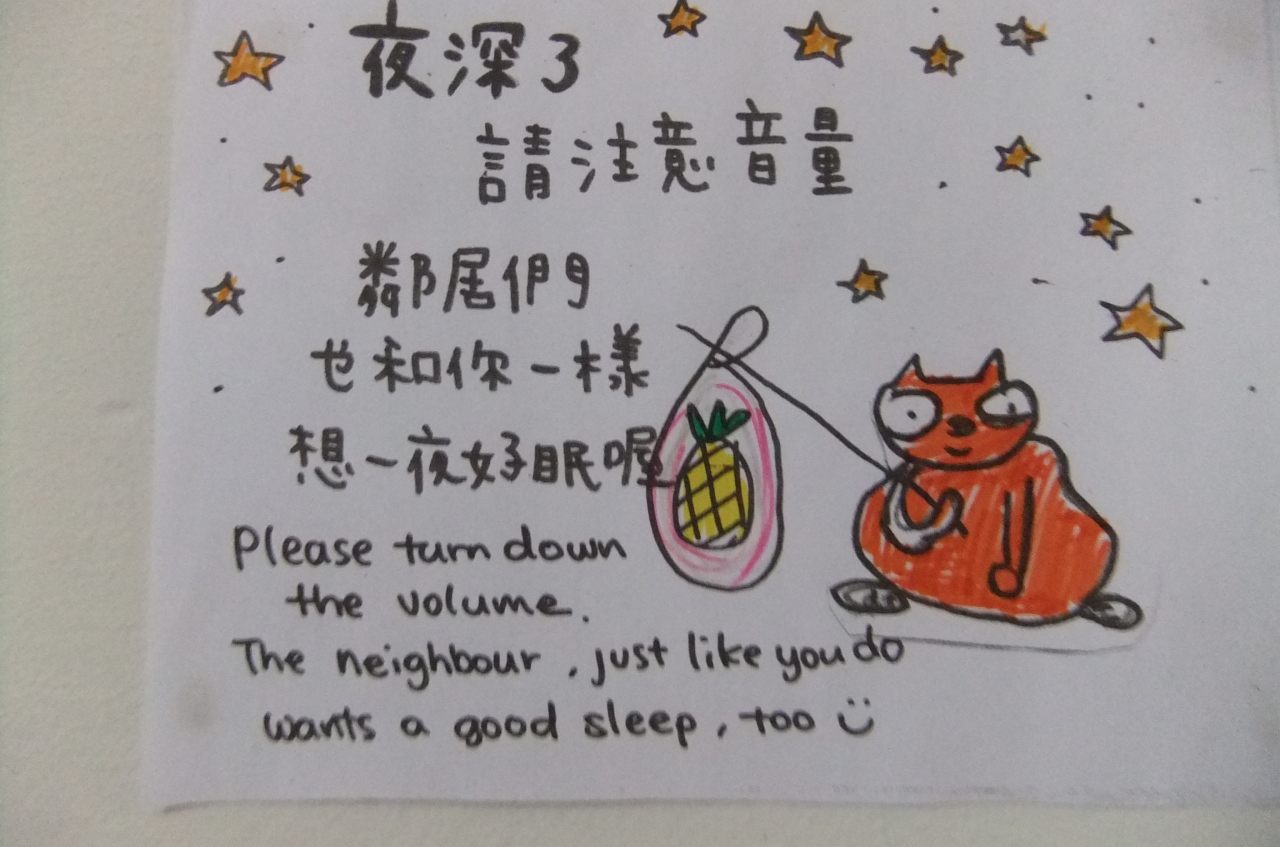 夜深了
請注意音量
鄰居們
也和你一樣
想一夜好眠喔
Please turn down
the volume.
The neighbour, just like you do
wants a good sleep, too